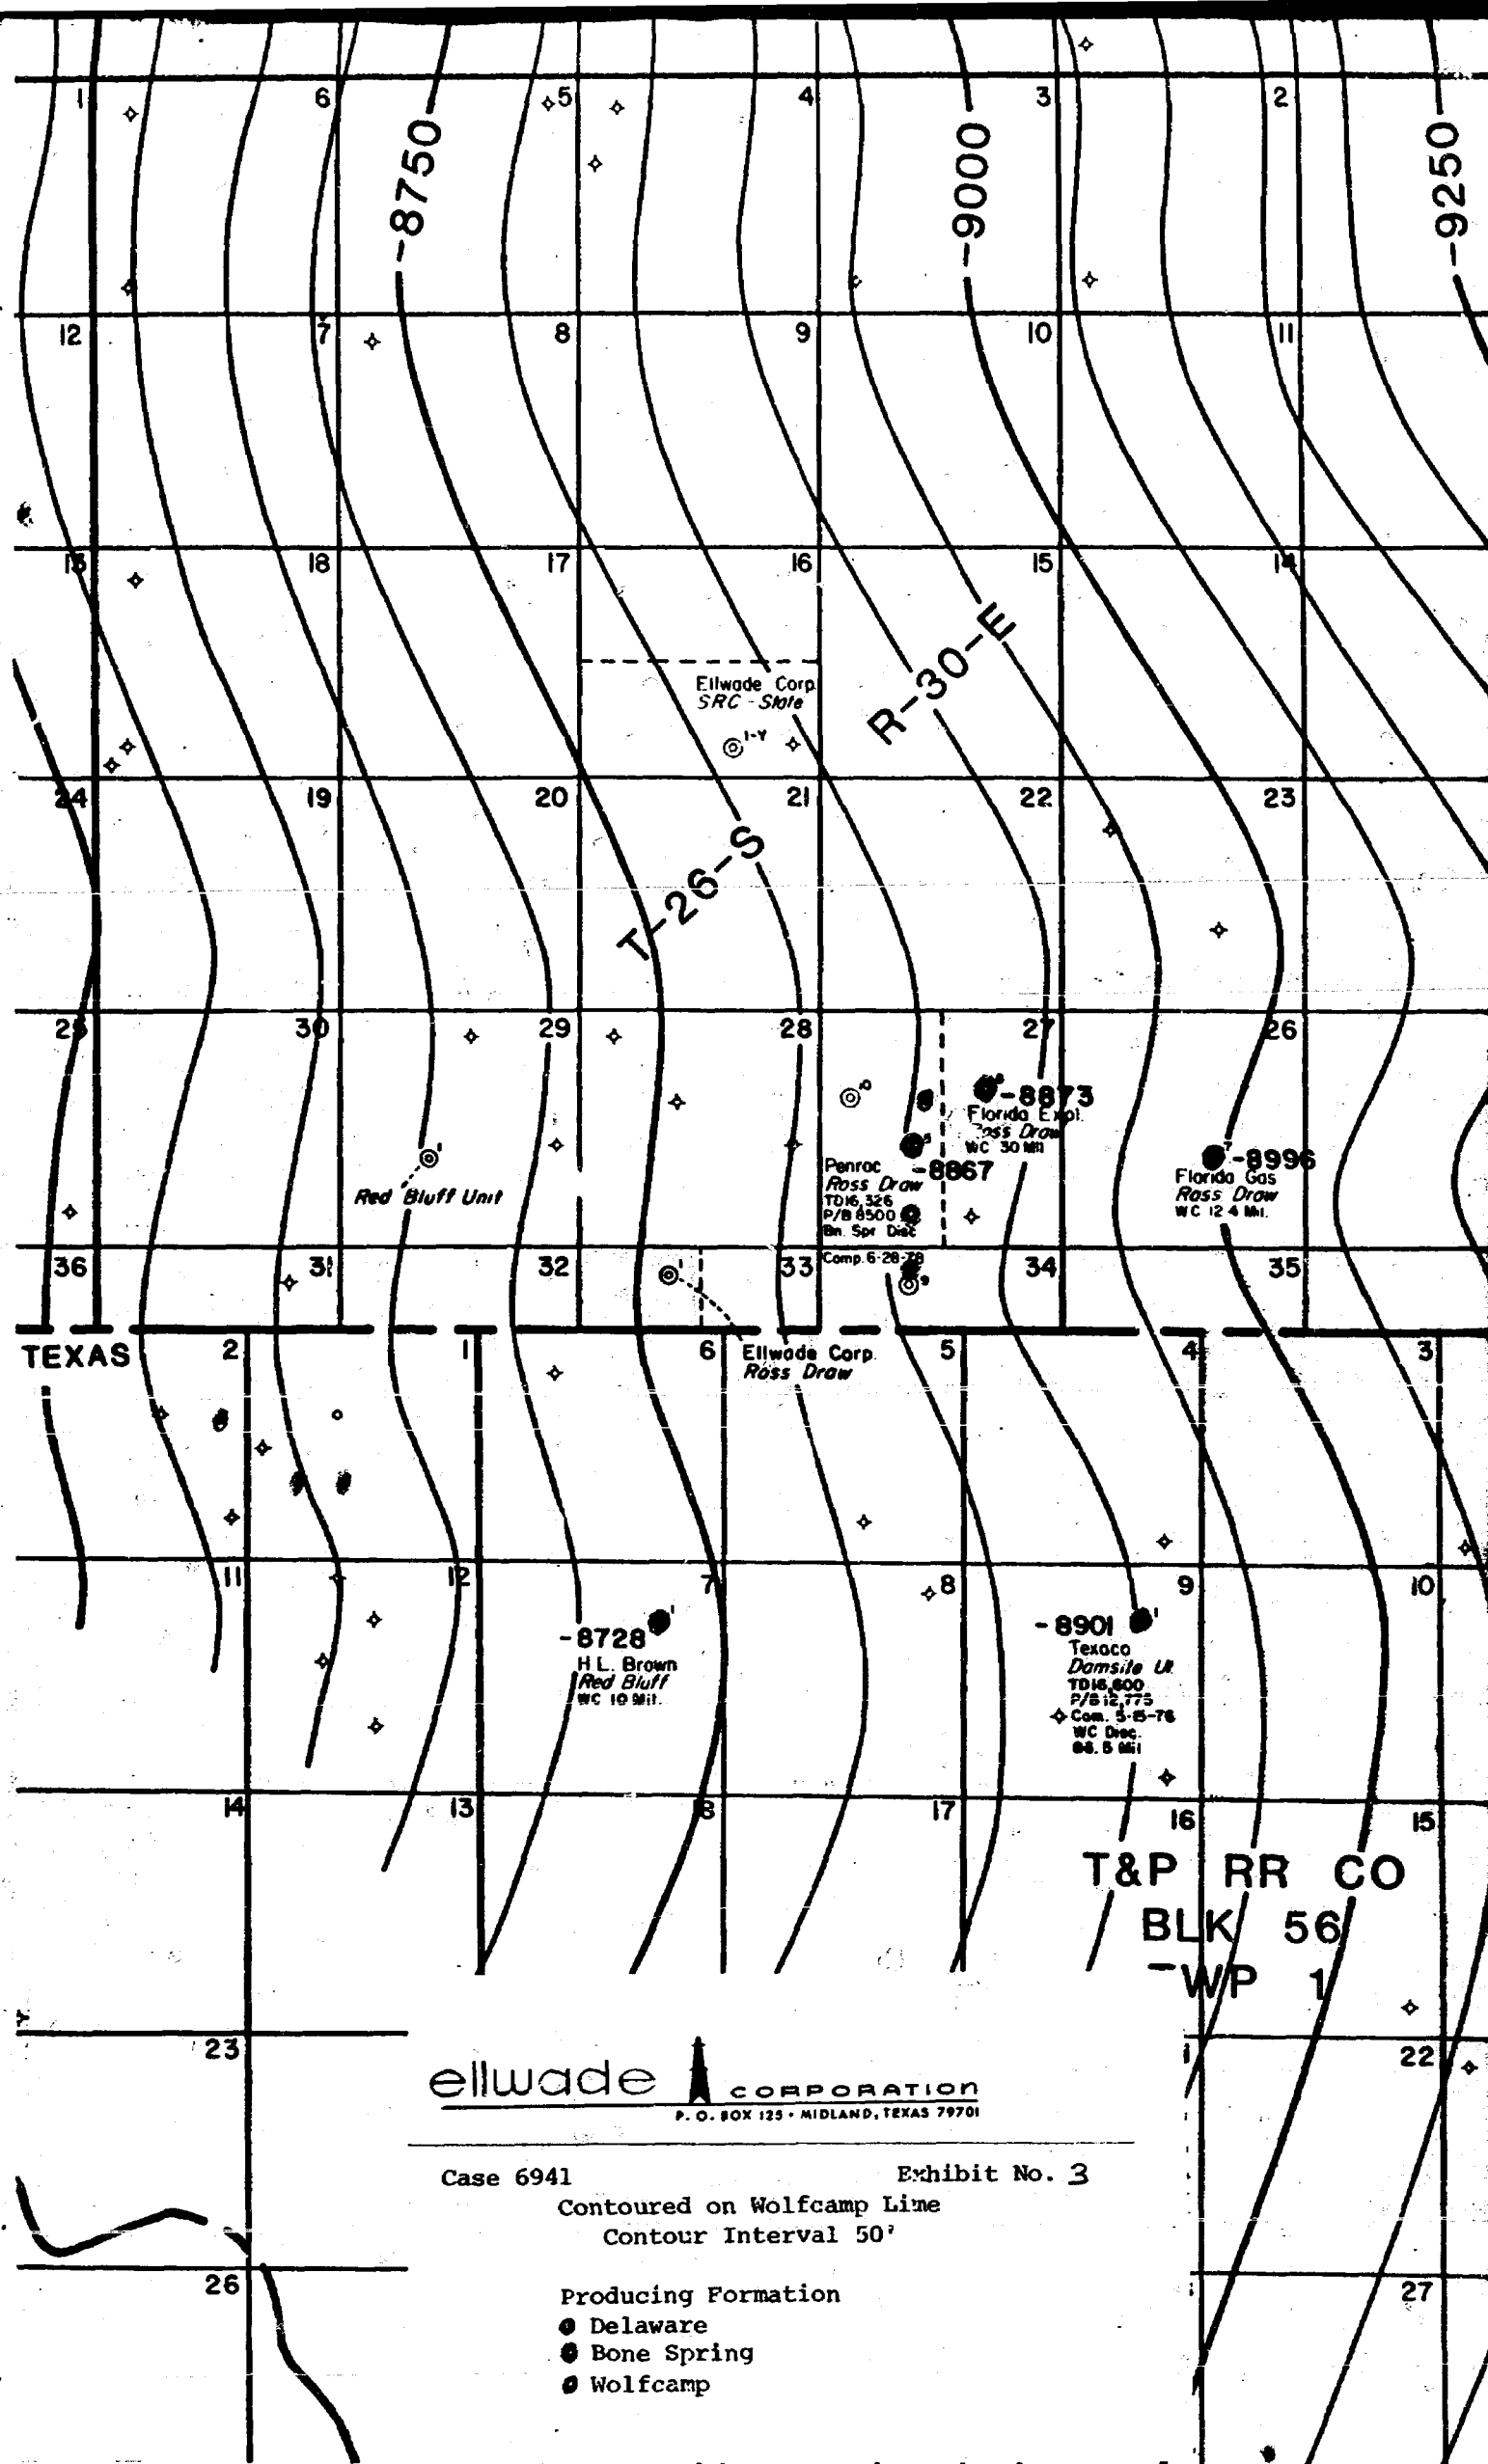 1 6 5 4 3 2
-8750-
-9000
-9250-
12 7 8 9 10 11
13 18 17 16 15 14
R-30-E
Ellwade Corp
SRC - State
1-Y
24 19 20 21 22 23
T-26-S
25 30 29 28 27 26
-8873
Florida Expl.
Ross Draw
WC 30 Mil
-8867
Penroc
Ross Draw
TD16,326
P/B 8500
Bn. Spr Disc
Comp. 6-28-78
7 -8996
Florida Gas
Ross Draw
WC 12.4 Mil.
1
Red Bluff Unit
36 31 32 33 34 35
1
9
TEXAS
2 1 6 5 4 3
Ellwade Corp.
Ross Draw
11 12 7 8 9 10
-8728 1
H L. Brown
Red Bluff
WC 10 Mil.
-8901 1
Texaco
Damsite Ut.
TD16,600
P/B 12,775
Com. 5-15-76
WC Disc.
88.5 Mil
14 13 18 17 16 15
T&P RR CO
BLK 56
TWP 1
23 22
ellwade CORPORATION
P. O. BOX 125 • MIDLAND, TEXAS 79701
Case 6941 Exhibit No. 3
Contoured on Wolfcamp Lime
Contour Interval 50'
26 27
Producing Formation
Delaware
Bone Spring
Wolfcamp